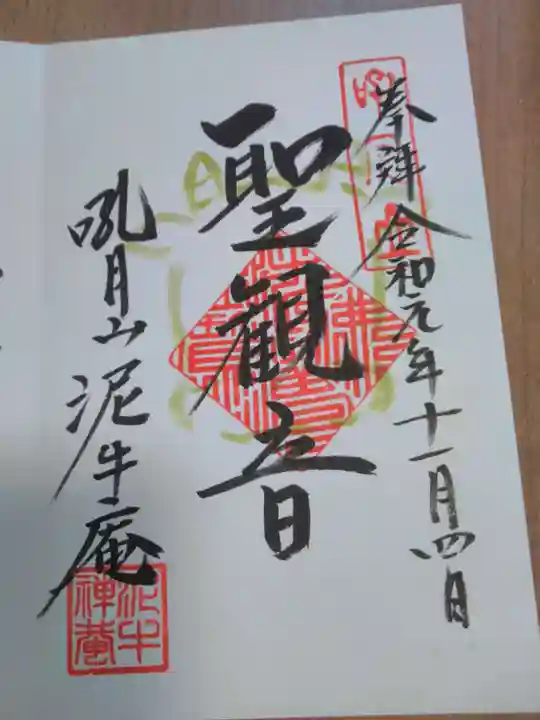 奉拝 令和元年十一月四日
聖観音
吼月山泥牛庵
泥牛禅菴